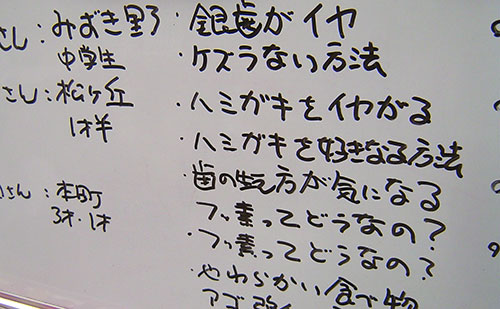 さん：みずき野
中学生
さん：松ヶ丘
1才半
さん：本町
3才・1才
・銀歯がイヤ
・ケズラない方法
・ハミガキをイヤがる
・ハミガキを好きなる方法
・歯の生え方が気になる
フッ素ってどうなの？
・フッ素ってどうなの？
・やわらかい食べ物
アゴ